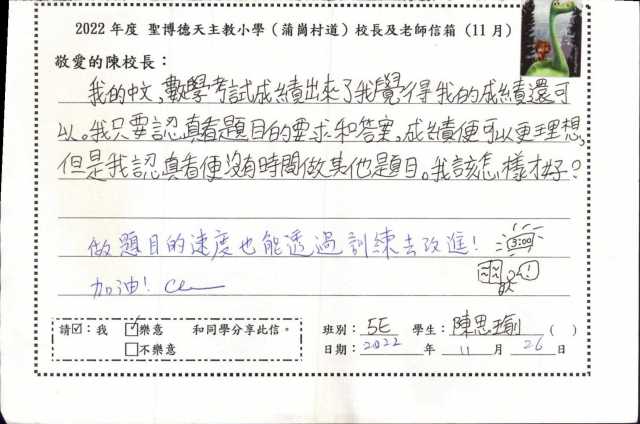 2022年度 聖博德天主教小學（蒲崗村道）校長及老師信箱（11月）
敬愛的陳校長：
我的中文,數學考試成績出來了我覺得我的成績還可
以。我只要認真看題目的要求和答案,成績便可以更理想,
但是我認真看便沒有時間做其他題目。我該怎樣才好？
做題目的速度也能透過訓練去改進！
3:00
加油！
請☑：我 ☑樂意 和同學分享此信。
□不樂意
班別：5E 學生：陳思瑜 ( )
日期：2022 年 11 月 26 日